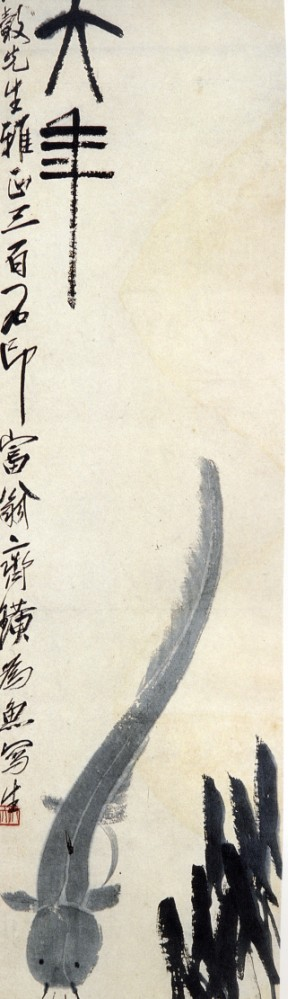 大年
先生雅正三百石印富翁齊璜為魚寫生